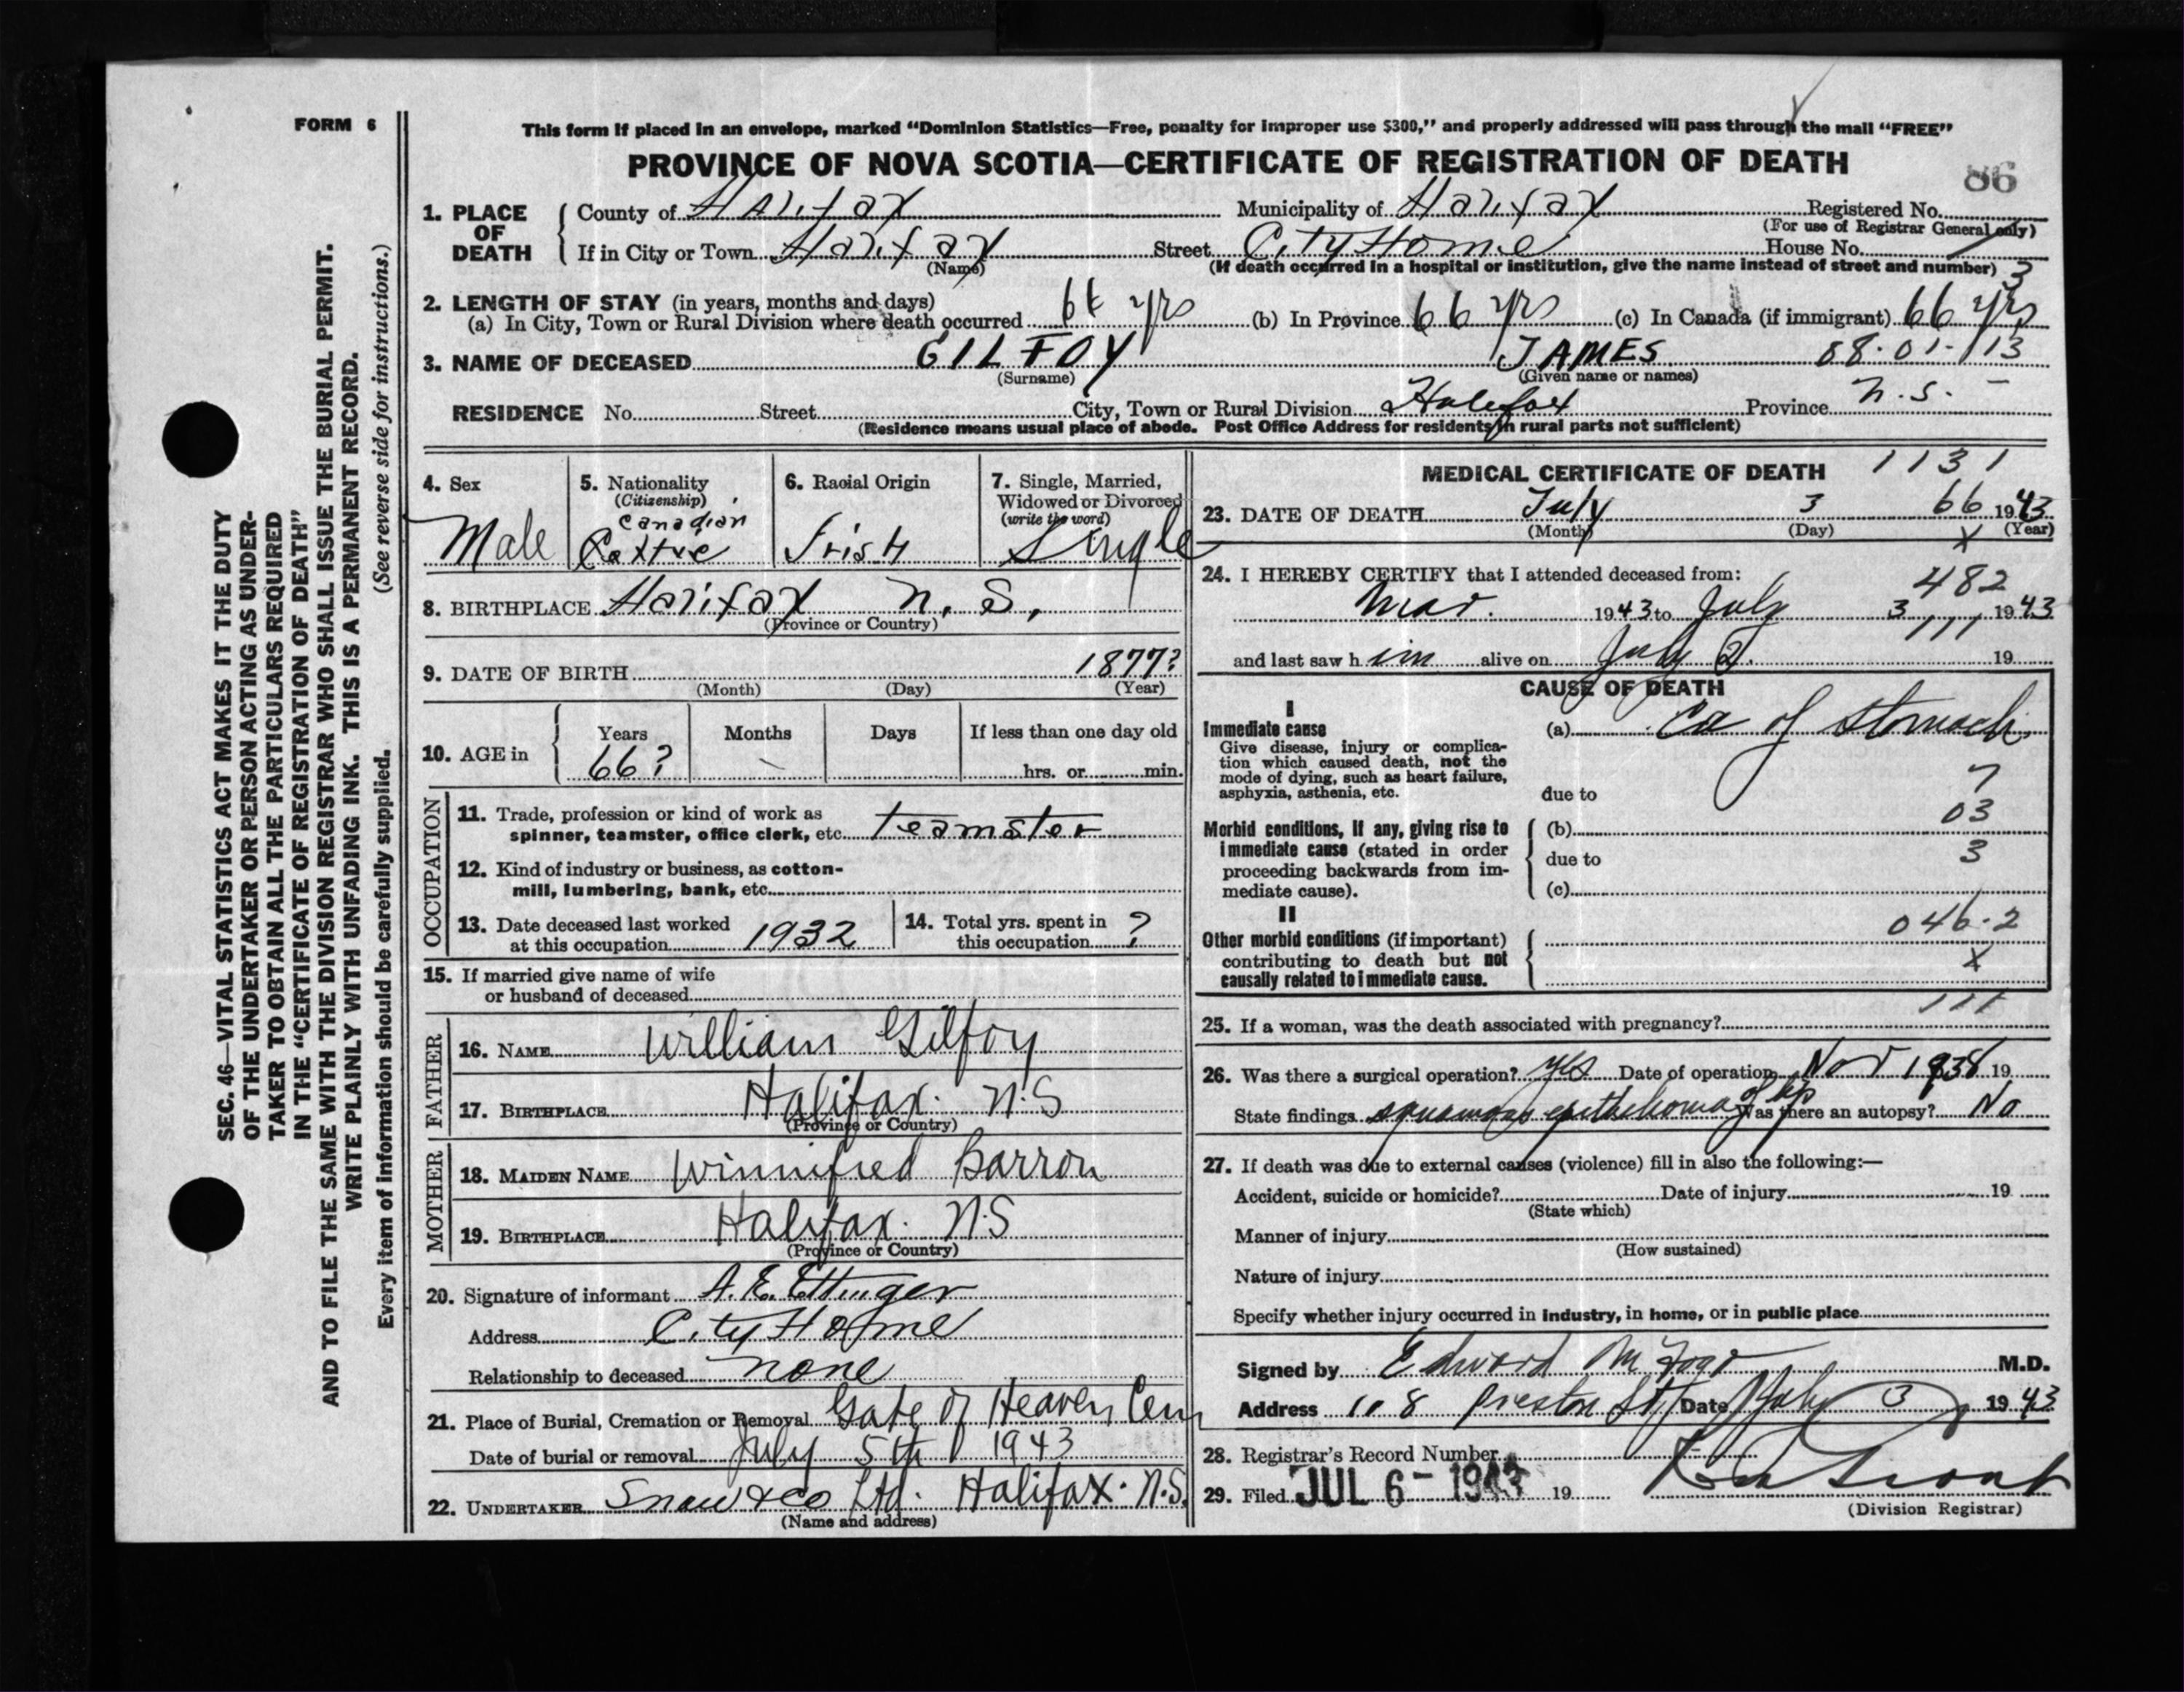 FORM 6
This form if placed in an envelope, marked “Dominion Statistics—Free, penalty for improper use $300,” and properly addressed will pass through the mail “FREE”
PROVINCE OF NOVA SCOTIA—CERTIFICATE OF REGISTRATION OF DEATH
86
1. PLACE OF DEATH
County of Halifax Municipality of Halifax Registered No.
(For use of Registrar General only)
If in City or Town Halifax Street City Home House No.
(Name) (If death occurred in a hospital or institution, give the name instead of street and number) 3
2. LENGTH OF STAY (in years, months and days)
(a) In City, Town or Rural Division where death occurred 66 yrs (b) In Province 66 yrs (c) In Canada (if immigrant) 66 yrs
3. NAME OF DECEASED GILFOY JAMES 88-01-113
(Surname) (Given name or names)
RESIDENCE No. Street City, Town or Rural Division Halifax Province N.S. -
(Residence means usual place of abode. Post Office Address for residents in rural parts not sufficient)
4. Sex
Male
5. Nationality
(Citizenship)
Canadian
6. Racial Origin
Irish
7. Single, Married,
Widowed or Divorced
(write the word)
Single
8. BIRTHPLACE Halifax N.S.
(Province or Country)
9. DATE OF BIRTH 1877?
(Month) (Day) (Year)
10. AGE in
Years Months Days If less than one day old
66? hrs. or min.
OCCUPATION
11. Trade, profession or kind of work as
spinner, teamster, office clerk, etc. teamster
12. Kind of industry or business, as cotton-
mill, lumbering, bank, etc.
13. Date deceased last worked
at this occupation 1932
14. Total yrs. spent in
this occupation ?
15. If married give name of wife
or husband of deceased
FATHER
16. NAME William Gilfoy
17. BIRTHPLACE Halifax. N.S
(Province or Country)
MOTHER
18. MAIDEN NAME Winnifred Barron
19. BIRTHPLACE Halifax. N.S
(Province or Country)
20. Signature of informant A. E. Ettinger
Address City Home
Relationship to deceased none
21. Place of Burial, Cremation or Removal Gate of Heaven Cem
Date of burial or removal July 5th 1943
22. UNDERTAKER Snow & Co Ltd. Halifax. N.S.
(Name and address)
MEDICAL CERTIFICATE OF DEATH 1131
23. DATE OF DEATH July 3 66 1943
(Month) (Day) X (Year)
24. I HEREBY CERTIFY that I attended deceased from:
482
Mar. 1943 to July 3 1943
111
and last saw him alive on July 2. 19
CAUSE OF DEATH
I
Immediate cause
Give disease, injury or complica-
tion which caused death, not the
mode of dying, such as heart failure,
asphyxia, asthenia, etc.
(a) Ca of stomach
7
due to
03
Morbid conditions, if any, giving rise to
immediate cause (stated in order
proceeding backwards from im-
mediate cause).
(b)
due to
3
(c)
II
Other morbid conditions (if important)
contributing to death but not
causally related to immediate cause.
046.2
X
111
25. If a woman, was the death associated with pregnancy?
26. Was there a surgical operation? Yes Date of operation Nov 1938 19
State findings squamous epithelioma of lip Was there an autopsy? No
27. If death was due to external causes (violence) fill in also the following:—
Accident, suicide or homicide? Date of injury 19
(State which)
Manner of injury
(How sustained)
Nature of injury
Specify whether injury occurred in industry, in home, or in public place
Signed by Edward M Fogo M.D.
Address 118 Preston St Date July 3 1943
28. Registrar's Record Number
29. Filed JUL 6- 1943 19
(Division Registrar)
SEC. 46—VITAL STATISTICS ACT MAKES IT THE DUTY
OF THE UNDERTAKER OR PERSON ACTING AS UNDER-
TAKER TO OBTAIN ALL THE PARTICULARS REQUIRED
IN THE “CERTIFICATE OF REGISTRATION OF DEATH”
AND TO FILE THE SAME WITH THE DIVISION REGISTRAR WHO SHALL ISSUE THE BURIAL PERMIT.
WRITE PLAINLY WITH UNFADING INK. THIS IS A PERMANENT RECORD.
Every item of information should be carefully supplied. (See reverse side for instructions.)